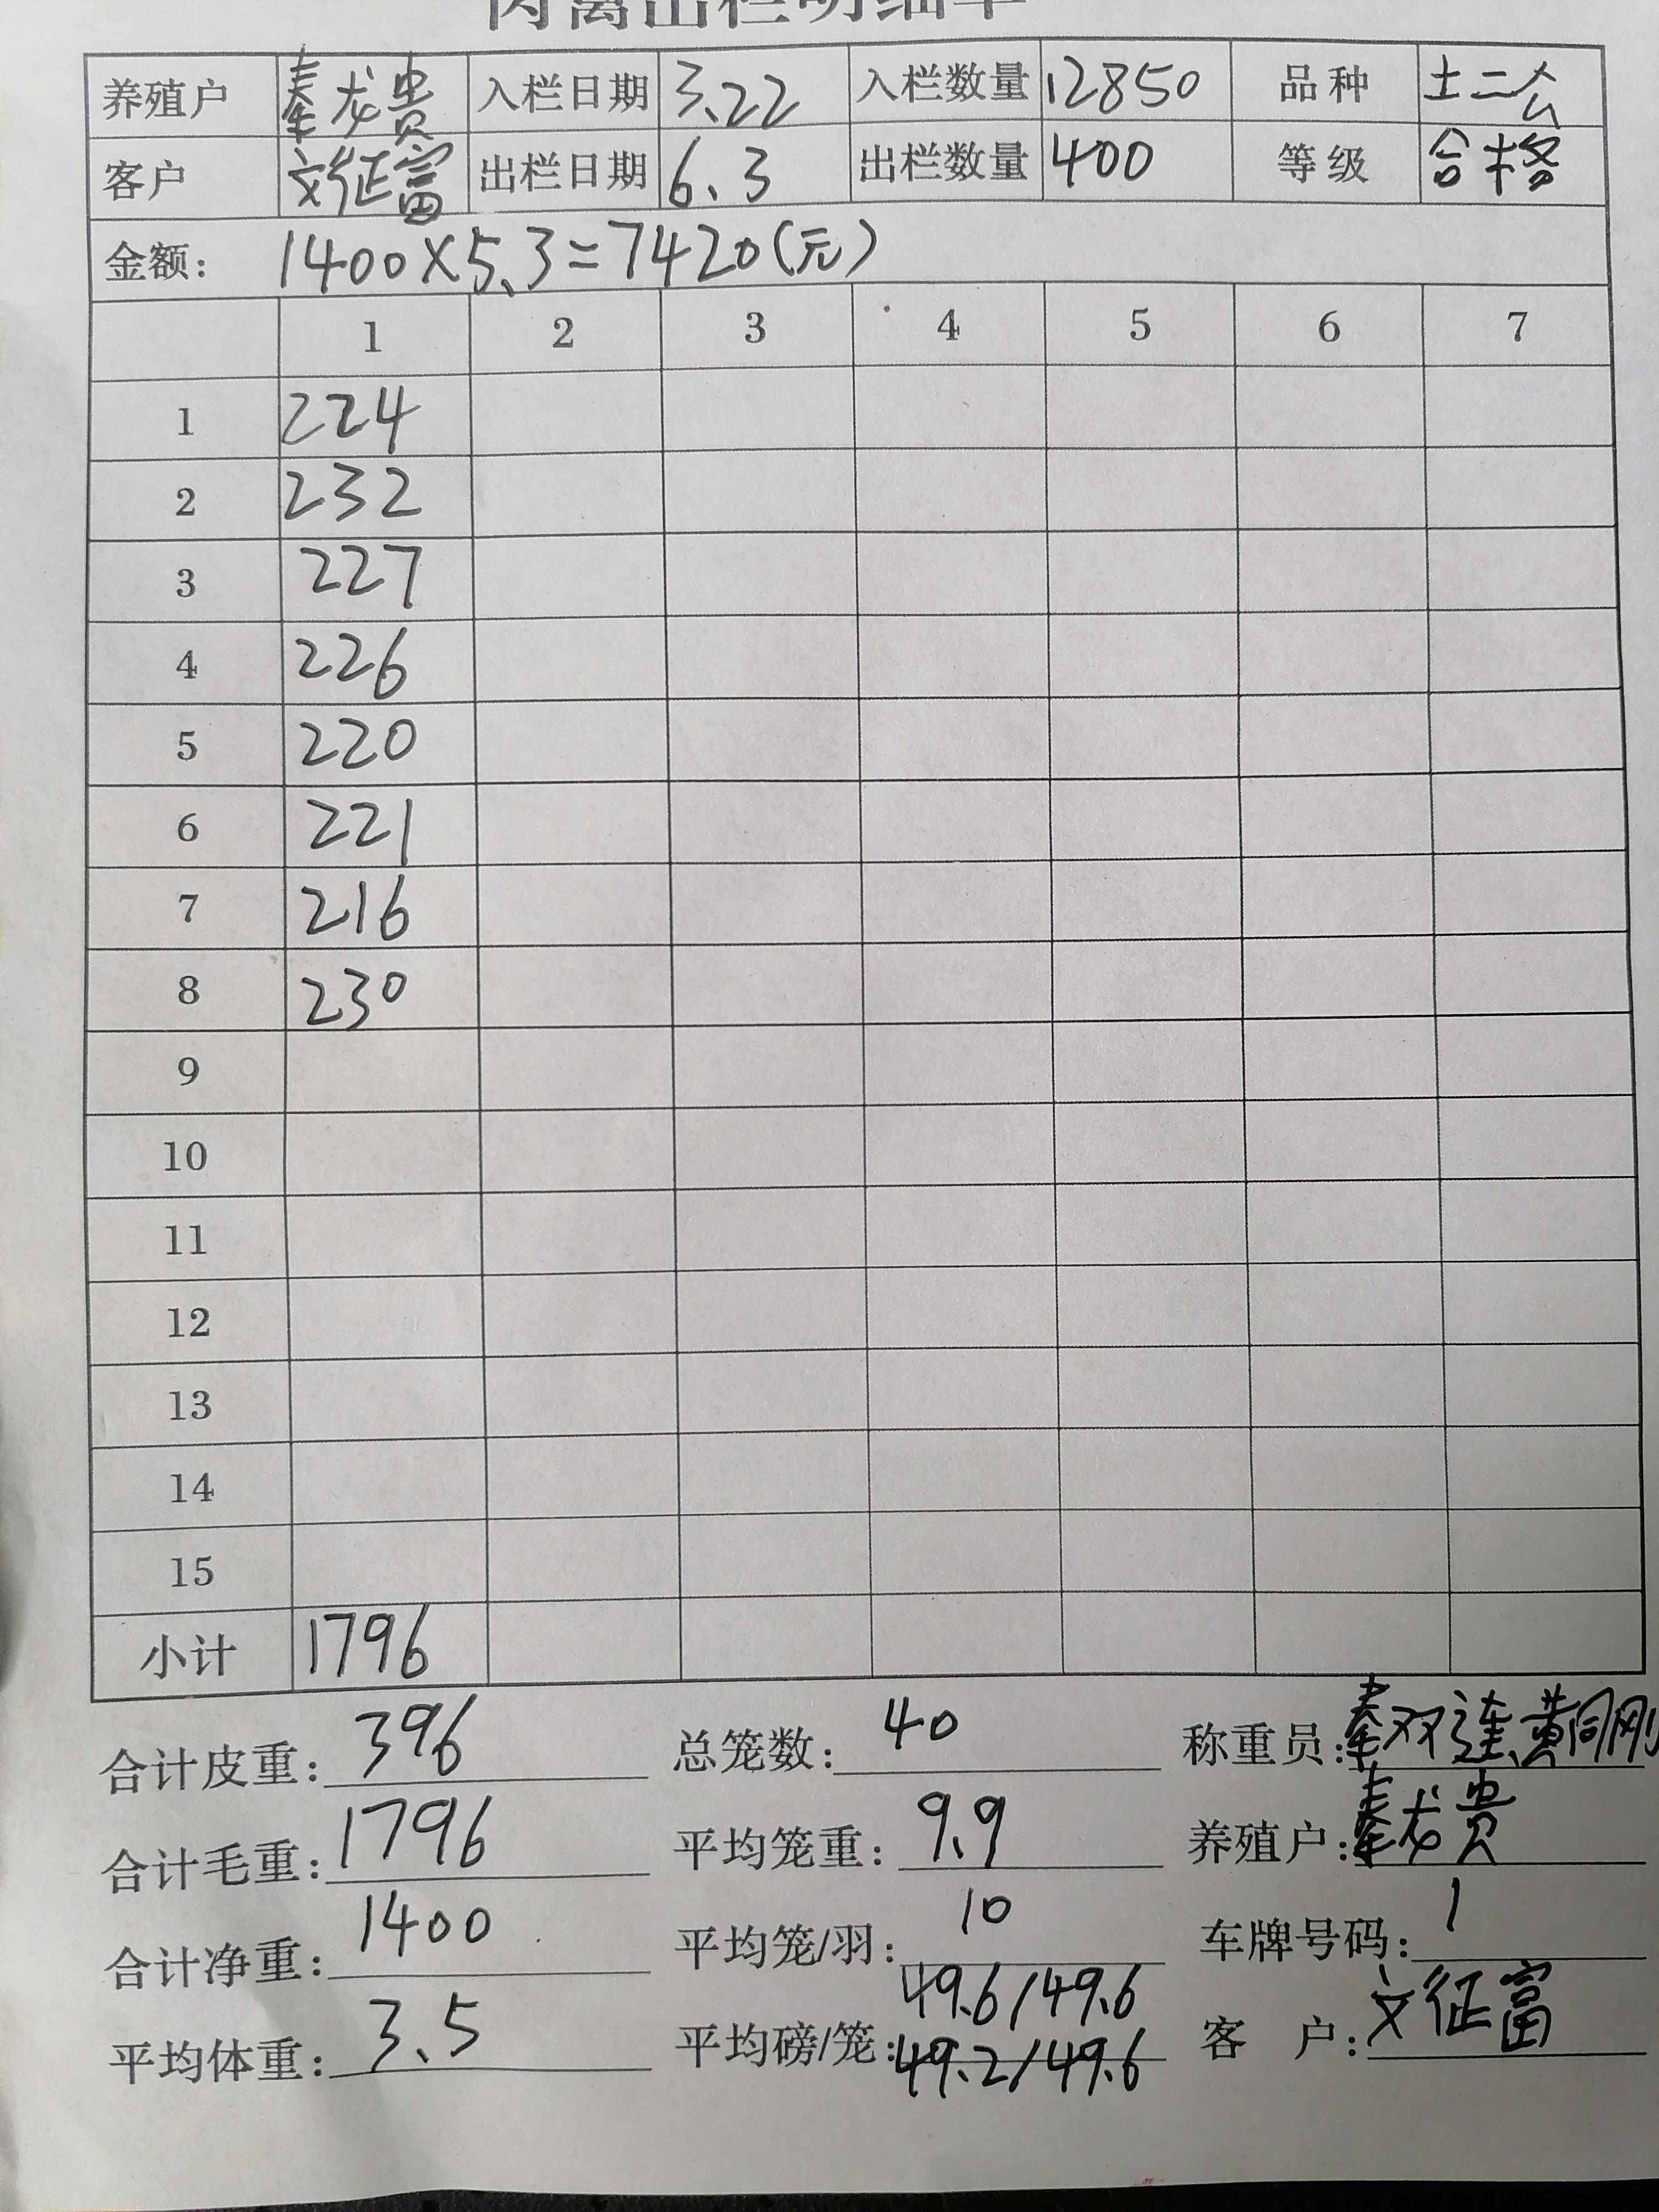 肉禽出栏明细单
养殖户 秦龙贵 入栏日期 3.22 入栏数量 12850 品种 土二公
客户 文征富 出栏日期 6.3 出栏数量 400 等级 合格
金额: 1400×5.3=7420(元)
1 2 3 4 5 6 7
1 224
2 232
3 227
4 226
5 220
6 221
7 216
8 230
9
10
11
12
13
14
15
小计 1796
合计皮重: 396 总笼数: 40 称重员: 秦双连、黄同刚
合计毛重: 1796 平均笼重: 9.9 养殖户: 秦龙贵
合计净重: 1400 平均笼/羽: 10 车牌号码: 1
49.6/49.6
平均体重: 3.5 平均磅/笼: 49.2/49.6 客户: 文征富